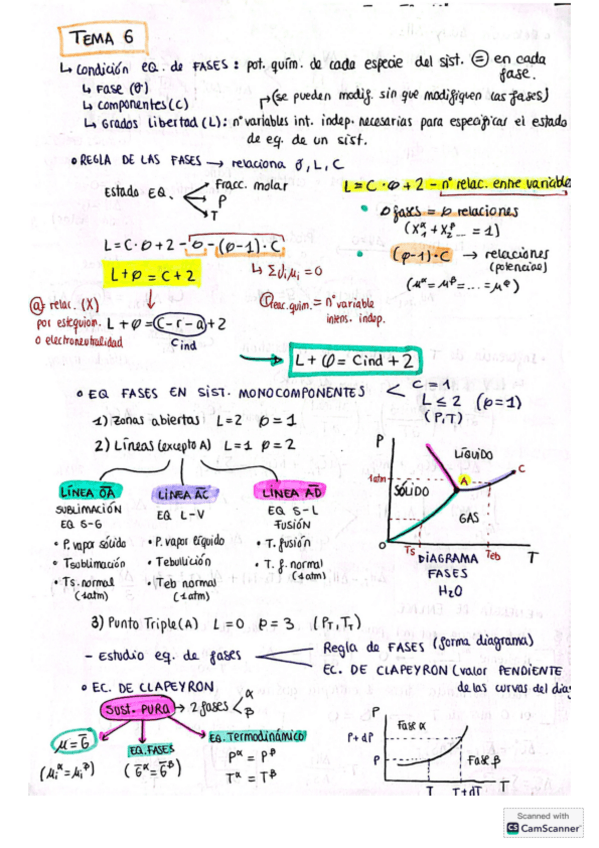 TEMA 6
↳ Condición eq. de FASES: pot. quím. de cada especie del sist. (=) en cada fase.
↳ Fase (φ)
↳ Componentes (C)
(se pueden modif. sin que modifiquen las fases)
↳ Grados libertad (L): nº variables int. indep. necesarias para especificar el estado de eq. de un sist.
• REGLA DE LAS FASES → relaciona φ, L, C
Estado EQ.
Fracc. molar
P
T
L = C·φ + 2 - nº relac. entre variable
• φ fases = φ relaciones
(X₁ᵅ + X₂ᵝ ... = 1)
• (φ-1)·C → relaciones (potenciae)
(μᵅ = μᵝ = ... = μᵠ)
L = C·φ + 2 - φ - (φ-1)·C
L + φ = C + 2
↳ Σνᵢμᵢ = 0
ⓡeac. quím. = nº variable intens. indep.
ⓐ = relac. (X) por estequiom. o electroneutralidad
L + φ = C - r - a + 2
Cind
→ L + φ = Cind + 2
• EQ FASES EN SIST. MONOCOMPONENTES
C = 1
L ≤ 2 (φ=1)
(P,T)
1) Zonas abiertas L=2 φ=1
2) Líneas (excepto A) L=1 φ=2
LÍNEA OA
SUBLIMACIÓN
EQ S-G
• P. vapor sólido
• Tsublimación
• Ts. normal (1atm)
LÍNEA AC
EQ L-V
• P. vapor líquido
• Tebullición
• Teb normal (1atm)
LÍNEA AD
EQ S-L
FUSIÓN
• T. fusión
• T. f. normal (1atm)
P
1atm
SÓLIDO
LÍQUIDO
A
C
GAS
O
Ts
Teb
T
DIAGRAMA FASES
H₂O
3) Punto Triple (A) L=0 φ=3 (PT, TT)
- Estudio eq. de fases
Regla de FASES (forma diagrama)
EC. DE CLAPEYRON (valor PENDIENTE de las curvas del diag
• EC. DE CLAPEYRON
SUST. PURA → 2 fases
α
β
μ = G̅
(μᵢᵅ = μᵢᵝ)
EQ. FASES
(G̅ᵅ = G̅ᵝ)
EQ. Termodinámico
Pᵅ = Pᵝ
Tᵅ = Tᵝ
P
P+dP
P
Fase α
Fase β
T
T+dT
T
Scanned with
CS CamScanner